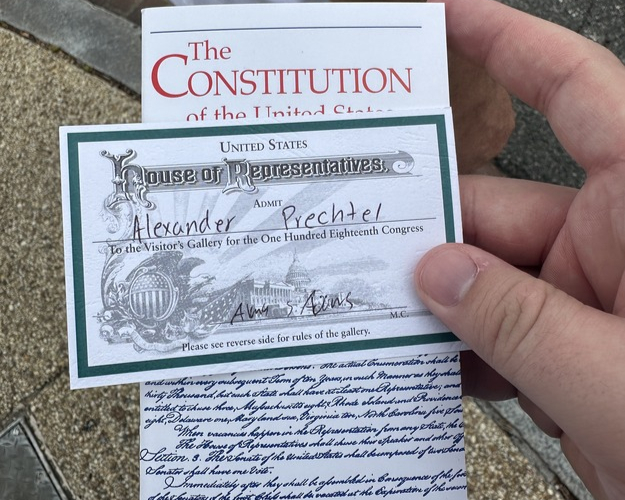 The
CONSTITUTION
of the United States
UNITED STATES
House of Representatives.
ADMIT
Alexander Prechtel
To the Visitor's Gallery for the One Hundred Eighteenth Congress
Alma S. Adams
M.C.
Please see reverse side for rules of the gallery.
The actual Enumeration shall be
and within every subsequent Term of ten Years, in such Manner as they shall
thirty Thousand, but each State shall have at Least one Representative; and
entitled to chuse three, Massachusetts eight, Rhode Island and Providence
eight, Delaware one, Maryland six, Virginia ten, North Carolina five,
When vacancies happen in the Representation from any State, the
The House of Representatives shall chuse their Speaker and other
Section. 3. The Senate of the United States shall be composed of two
Senator shall have one Vote.
Immediately after they shall be assembled in Consequence of the
of the Senators of the first Class shall be vacated at the Expiration of the